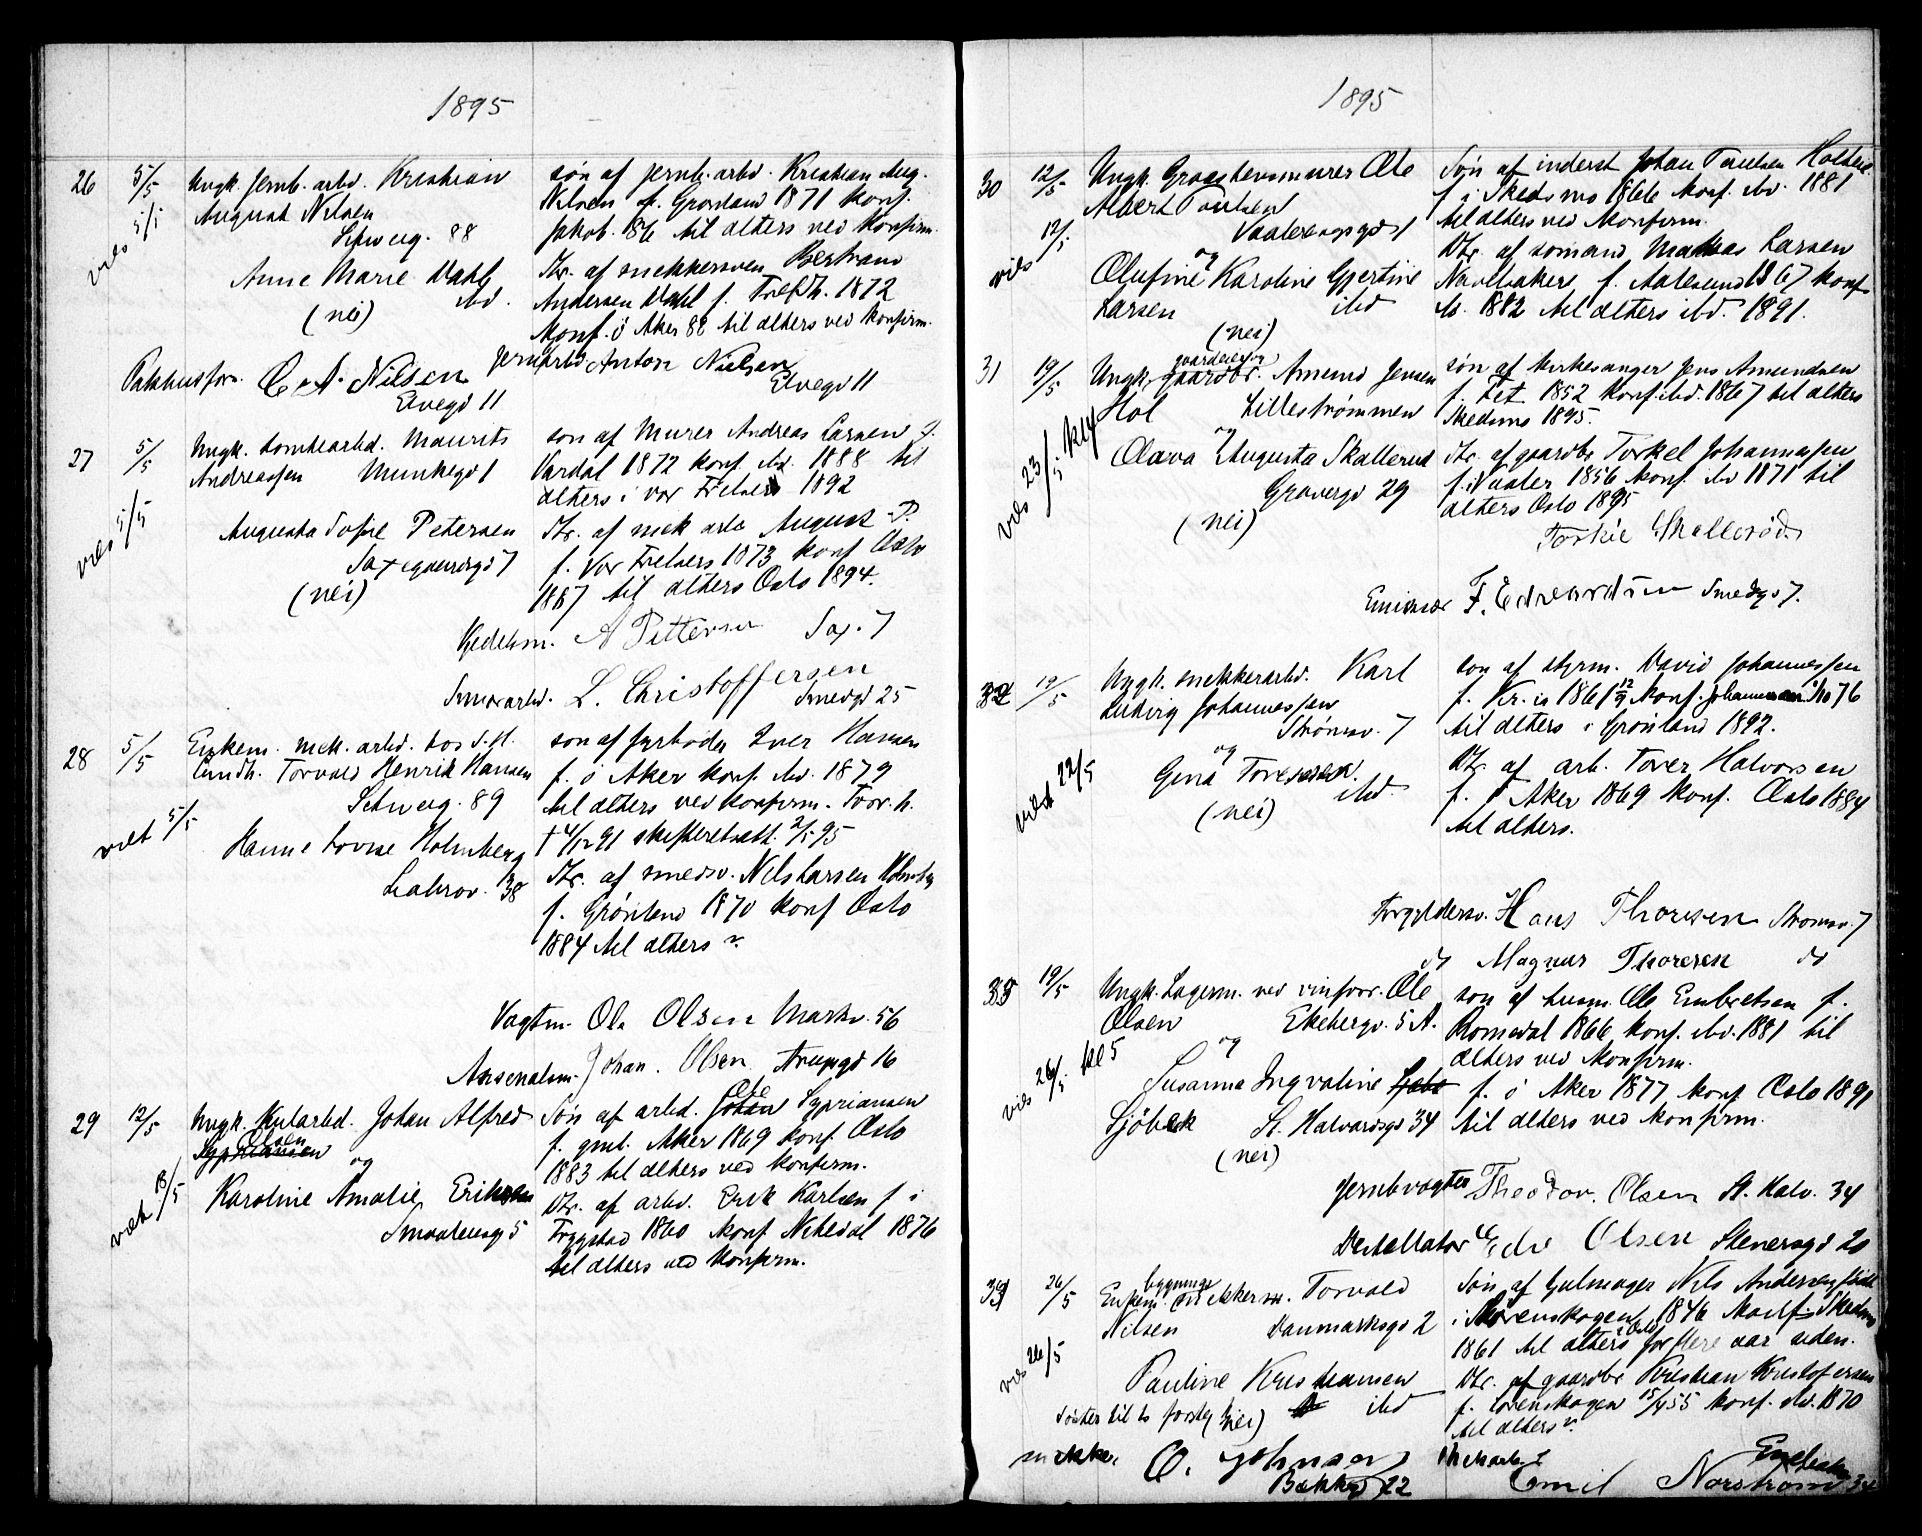 1895
26 5/5 Ungk. jernb. arbd. Kristian
August Nilsen
Schweig. 88
viet 5/5
Anne Marie Dahl
ibd.
(nei)
søn af jernb. arbd. Kristian Aug.
Nilsen f. Grønland 1871 konf.
Jakob. 186 til alters ved konfirm.
Dtr. af snekkersven Bertrand
Andersen Dahl f. Trefoldh. 1872
Konf. i Aker 88 til alters ved konfirm.
Pakhusforv. C. A. Nilsen
Elvegd 11
Jernarbd Anton Nielsen
Elvegd 11
27 5/5 Ungk. tomtearbd. Maurits
Andreassen Munkegd 1
vies 5/5
Augusta Sofie Petersen
Saxegaardsgd 7
(nei)
søn af Murer Andreas Larsen f.
Vardal 1872 konf. ibd. 1888 til
alters i vor Frelsers 1892
Dtr. af mek arb August P.
f. Vor Frelsers 1873 konf Oslo
1887 til alters Oslo 1894.
Kjedelsm. A Pettersen Sax. 7
L. Christoffersen
Smedgd 25
28 5/5 Enkem. mek. arbd.
Torvald Henrik Hansen
Schweig. 89
viet 5/5
Hanne Lovise Holmberg
Lakrov. 38
søn af fyrbøder Iver Hansen
f. i Aker konf. ibd. 1879
til alters ved konfirm.
skifteretsatt. 2/5 95
Dtr. af smedsv. Nils Larsen Holmberg
f. Grønland 1870 konf Oslo
1884 til alters
Vagtm. Ole Olsen Markv. 56
Arsenalsm. Johan Olsen Trupgd 16
29 12/5 Ungk. Kularbd. Johan Alfred
Olsen
og
viet 18/5
Karoline Amalie Eriksen
Smaalensgd 5
Søn af arbd. Ole Sypriansen
f. gml. Aker 1869 konf. Oslo
1883 til alters ved konfirm.
Dtr. af arbd. Erik Karlsen f i
Trygstad 1860 konf Nitedal 1876
til alters ved konfirm.
1895
30 12/5 Ungk. Graastensmurer Ole
Albert Paulsen
Vaalerengsgd 1
og
vies 12/5
Olufine Karoline Gjertine
Larsen ibd
(nei)
Søn af inderst Johan Paulsen
f. i Skedsmo 1866 konf. ibd. 1881
til alters ved Konfirm.
Dtr. af sømand Mathias Larsen
f. Aalesund 1867 konf
ib. 1882 til alters ibd. 1891.
31 19/5 Ungk. gaardeier Amund Jensen
Hol Lillestrømmen
og
vies 23/5 kl 4
Olava Augusta Skallerud
Grøvergd 29
(nei)
søn af kirkesanger Jens Amundsen
f. Fet 1852 konf. ibd. 1867 til alters
Skedsmo 1895.
Dtr. af gaardbr Torkel Johannessen
f. i Vaaler 1856 konf. ibd 1871 til
alters Oslo 1895
Torkil Skallerød
F. Edvardsen Smedgd 7.
32 19/5 Ungk. snekkerarbd. Karl
Ludvig Johannessen
Strømsv. 7
og
viet 22/5
Gina Toresen
ibd.
(nei)
søn af styrm. David Johannessen
f. Kr.ia 1861 12/9 konf. 76
til alters i Grønland 1892.
Dtr. af arb. Torer Halvorsen
f. i Aker 1869 konf. Oslo 1884
til alters.
Forgyldersv. Hans Thoresen Strømsv. 7
do Magnus Thoresen do
33 19/5 Ungk. Lagerm. ved vinforr. Ole
Olsen Ekebergv. 5 A.
og
vies 26/5 kl 5
Susanna Ingvaline
Sjöbek St. Halvardsgd 34
(nei)
søn af husm. Ole Embretsen f.
Romedal 1866 konf. ibd. 1881 til
alters ved konfirm.
f. i Aker 1877 konf Oslo 1891
til alters ved konfirm.
Jernbvogter Theodor Olsen St. Halv. 34
Destillatør Olsen Stenersgd 20
26/5 Enkem. bygningssnekkerm. Torvald
Nilsen Danmarksgd 2
vies 26/5
Pauline Kristiansen
ibd
Søster til (nei)
Søn af Gulmager Nils Andersen født
i Lørenskogen 1846 Konf. Skedsmo
1861 til alters for flere aar siden.
Dtr. af gaardbr Kristian Kristofersen
f. Lørenskogen 15/4 55 konf. ibd. 1870
til alters
snekker O. Johnsen
Bakkegd 22
Emil Norstrøm